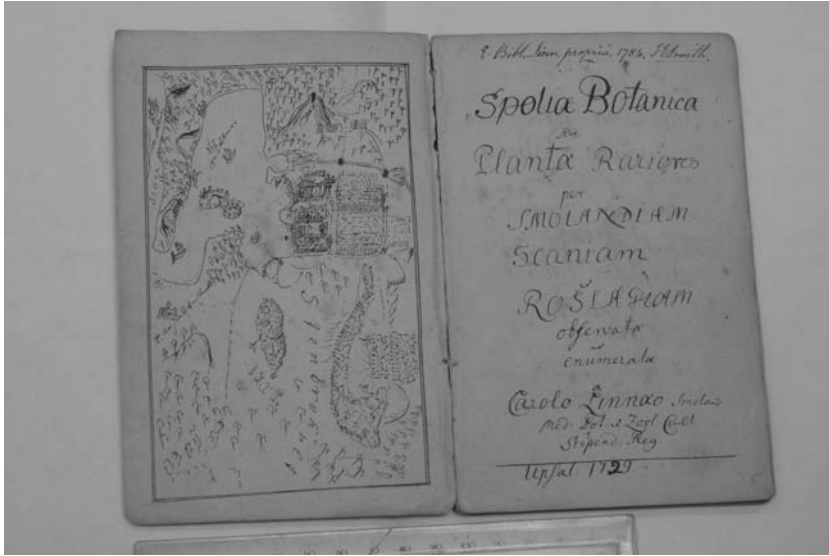 Stenbrohult
E Bibl. Linn. propriâ. 1784. JESmith.
Spolia Botanica
sive
Plantæ Rariores
per
SMOLANDIAM
Scaniam
et
ROSLAGIAM
observatæ
et
enumeratæ
â
Carolo Linnæo Smoland
Med: Bot: & Zool Cult.
Stipend: Reg
Upsal 1729